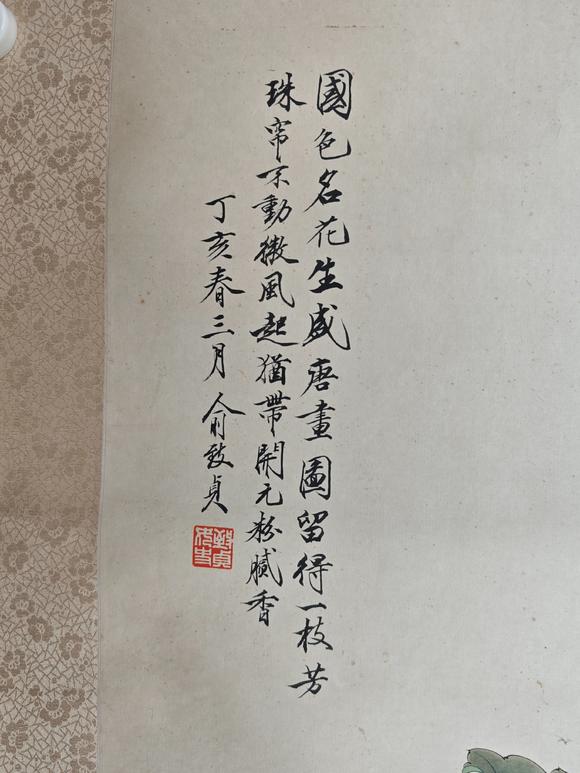 國色名花生盛唐畫圖留得一枝芳
珠帘不動微風起猶帶開元粉膩香
丁亥春三月俞致貞